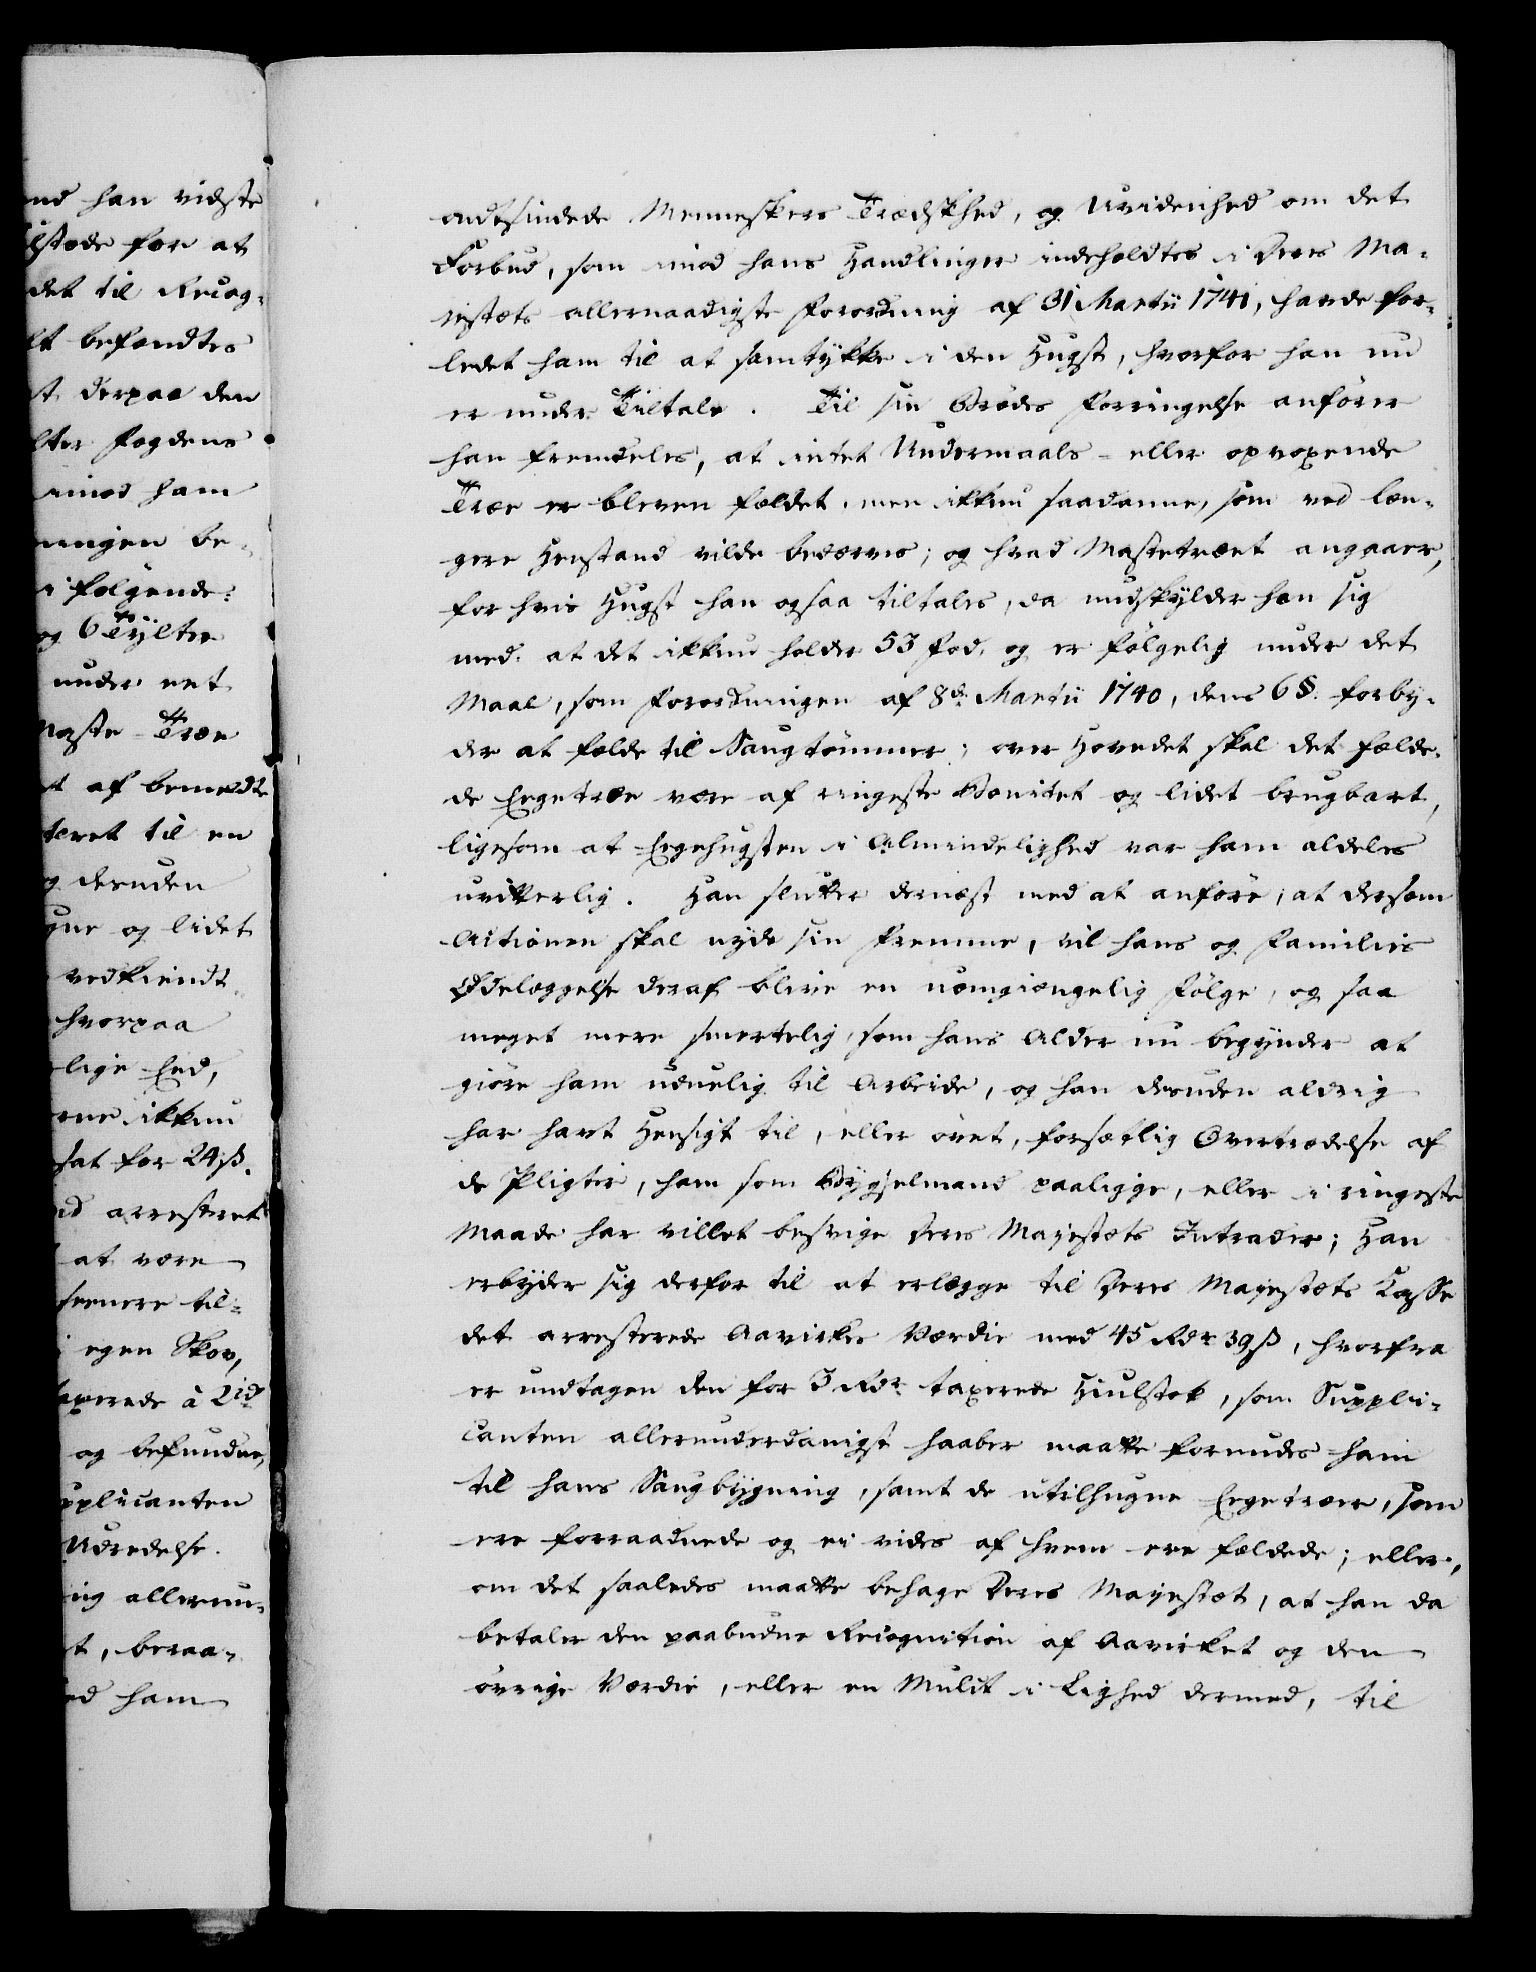 nd han vidste
lstede for at
det til Recog-
lt befandtes
st derpaa den
lter Fogdens
imod ham
ningen be-
i følgende:
og 6 Tylter
under eet
Maste-Træe
t af bemeldte
teret til en
g desuden
gne og lidet
vedkiendt
hvorpaa
lige Eed,
rne ikkun
sat for 24 ß.
id arresteret
at være
seenere til-
i egen Skov,
axerede à 2id
og befundne,
pplicanten
Udredelse.
ig allerun-
t, beraa-
ed ham
ondtsindede Menneskers Trædskhed, og Uvidenhed om det
Forbud, som imod hans Handlinger indeholdtes i Deres Ma-
jestæts allernaadigste Forordning af 31 Martii 1741, havde for-
ledet ham til at samtykke i den Hugst, hvorfor han nu
er under Tiltale. Til sin Brødes Forringelse anfører
han fremdeles, at intet Undermaals- eller opvoxende
Træe er bleven fældet, men ikkun saadanne, som ved læn-
gere Henstand vilde bedærves; og hvad Mastetræet angaaer,
for hvis Hugst han ogsaa tiltales, da undskylder han sig
med, at det ikkun holder 53 Fod, og er følgelig under det
Maal, som Forordningen af 8de Martii 1740, dens 6 §. forby-
der at fælde til Saugtømmer; over Hovedet skal det fælde-
de Egetræe være af ringeste Bonitet og lidet brugbart,
ligesom at Egehugsten i Almindelighed var ham aldeles
uvitterlig. Han slutter dernæst med at anføre, at dersom
Actionen skal nyde sin Fremme, vil hans og Families
Ødelæggelse deraf blive en uomgiængelig Følge, og saa
meget mere smertelig, som hans Alder nu begynder at
giøre ham uduelig til Arbeide, og han desuden aldrig
har havt Hensigt til, eller øvet, forsætlig Overtrædelse af
de Pligter, ham som Bygselmand paaligge, eller i ringeste
Maade har villet besvige Deres Majestæts Intrader; Han
erbyder sig derfor til at erlægge til Deres Majestæts Casse
det arresterede Aavirkes Værdie med 45 Rdr 39 ß, hvorfra
er undtagen den for 3 Rdr taxerede Hiulstok, som Suppli-
canten allerunderdanigst haaber maatte forundes ham
til hans Saugbygning, samt de utilhugne Egetræer, som
ere forraadnede og ei vides af hvem ere fældede; eller,
om det saaledes maatte behage Deres Majestæt, at han da
betaler den paabudne Recognition af Aavirket og den
øvrige Værdie, eller en Mulct i Lighed dermed, til